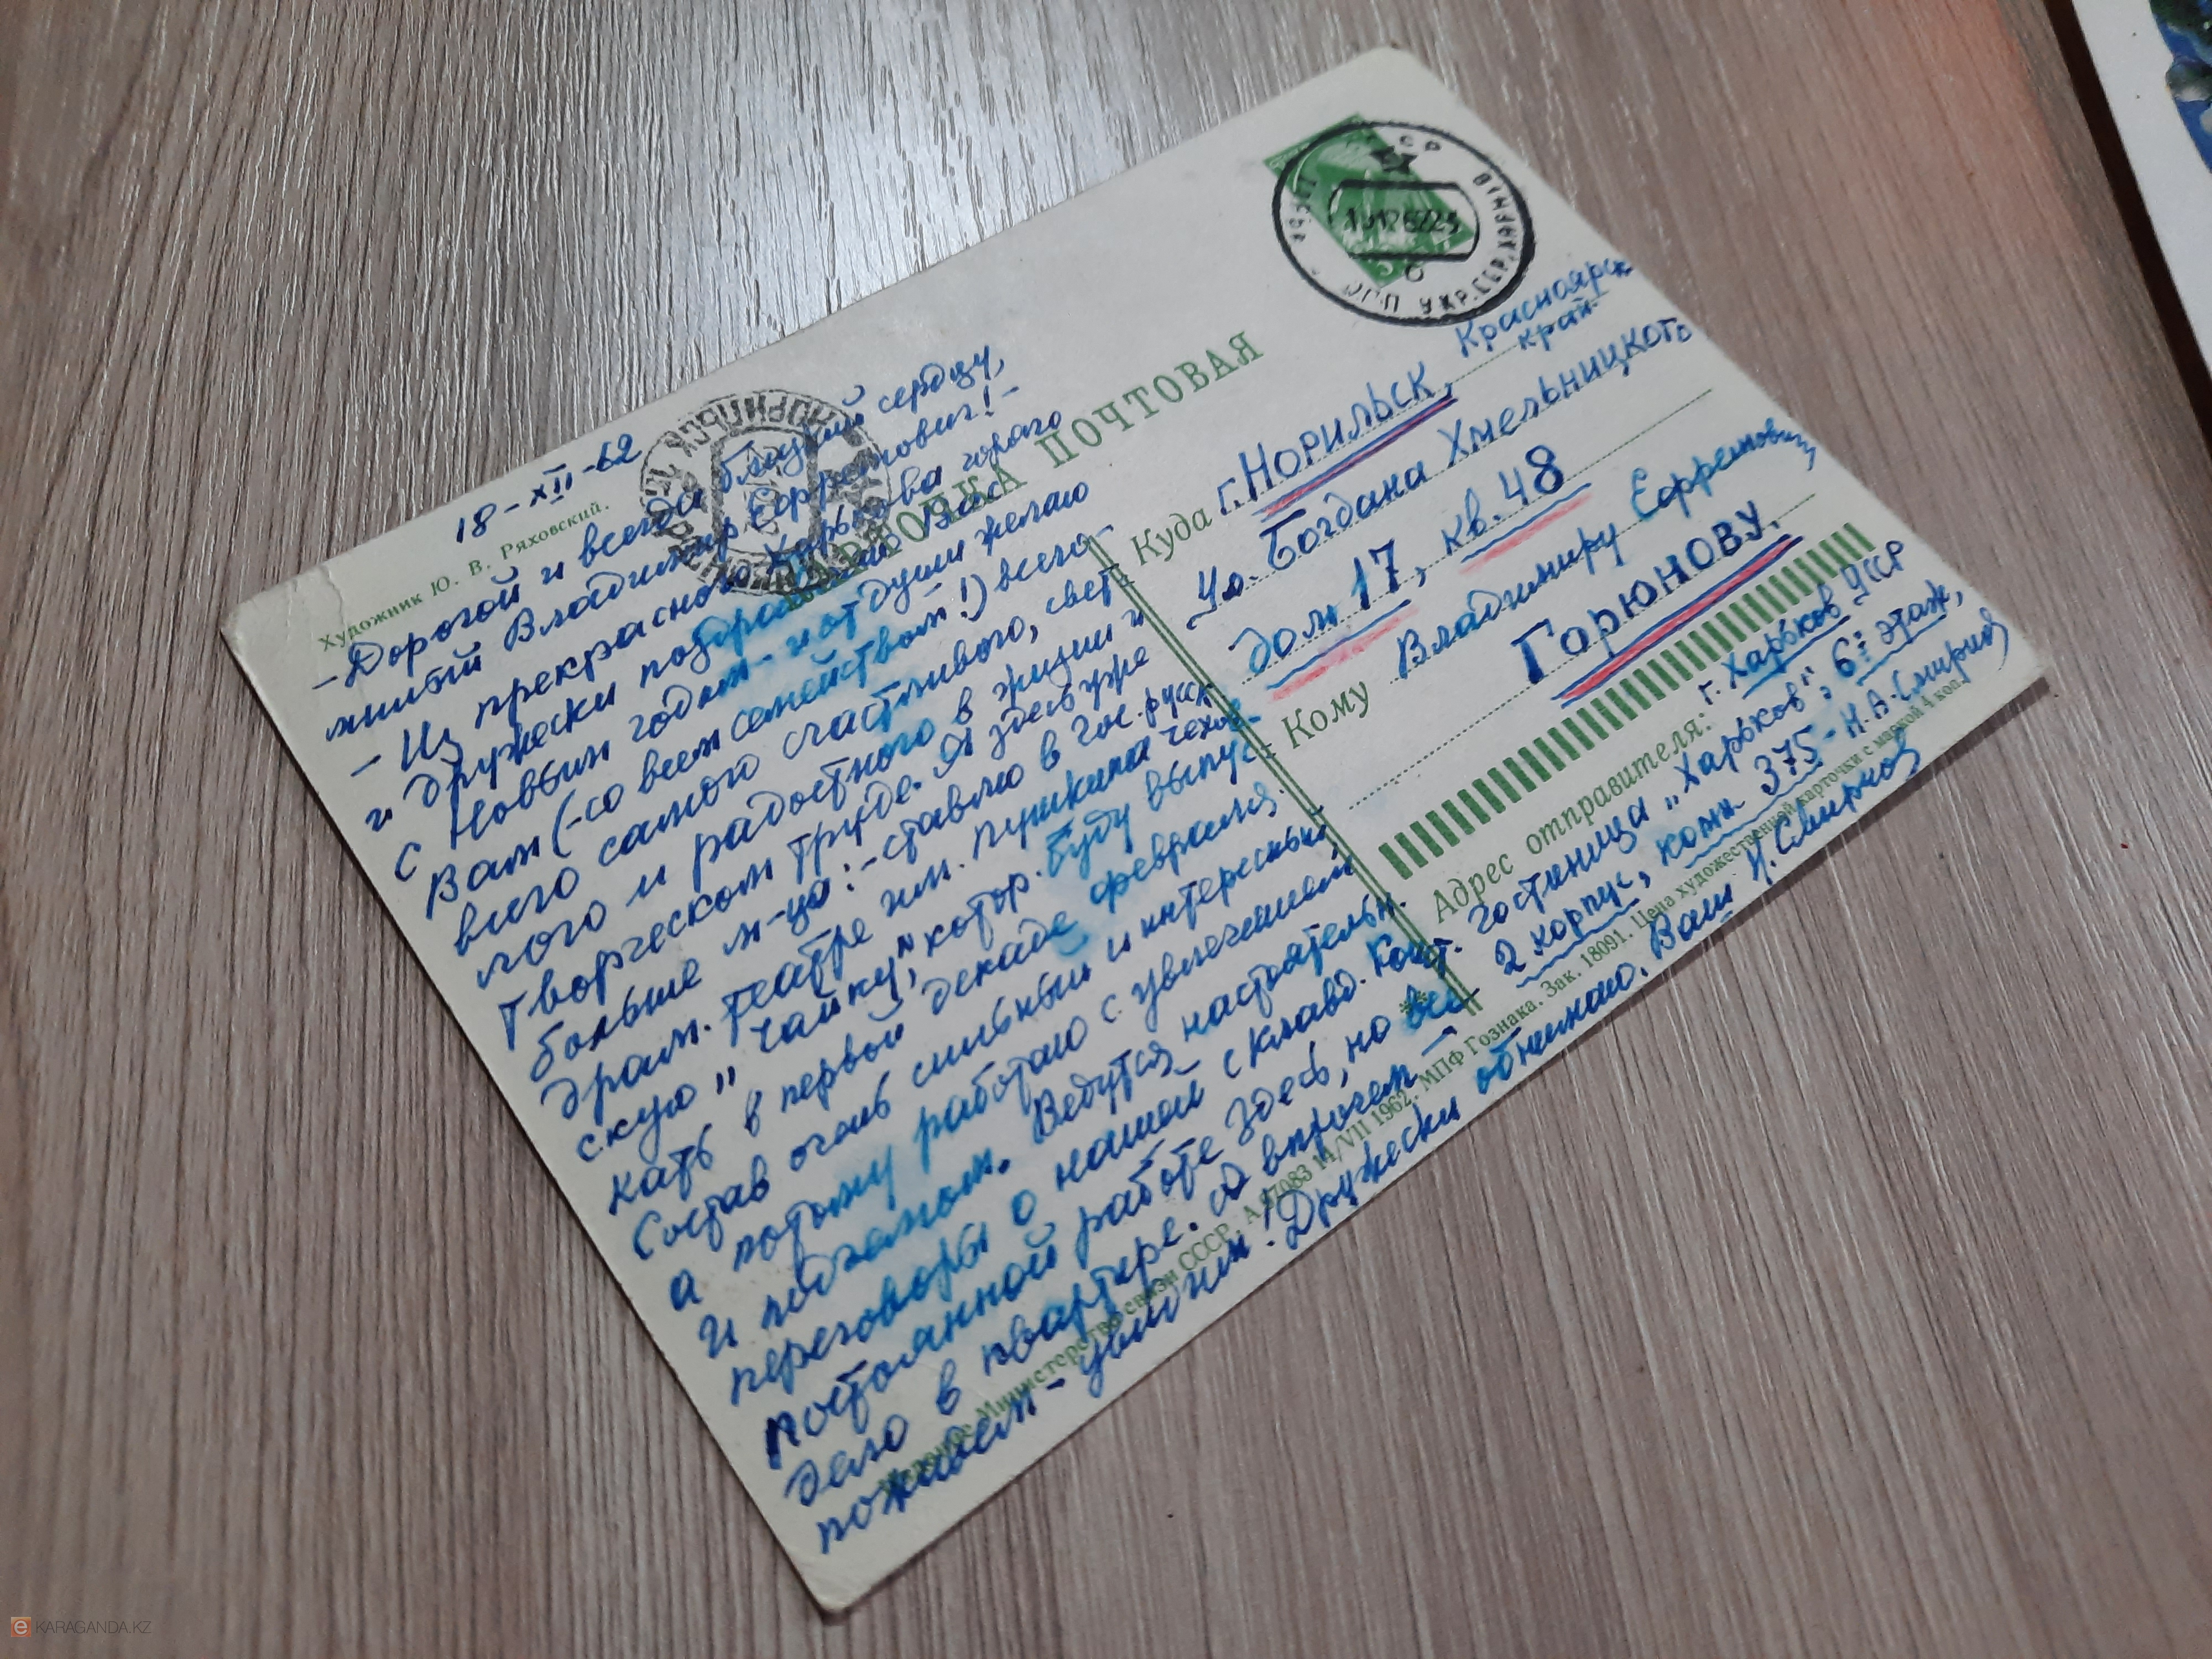 18-XII-62
Художник Ю. В. Ряховский.
-Дорогой и всегда близкий сердцу,
милый Владимир Ефремович!-
- Из прекрасного Харькова горяго
и дружески поздравляю Вас
с Новым годом - и от души желаю
Вам (-со всем семейством!) всего-
всего самого счастливого, свет
лого и радостного в жизни и
творческом труде. Я здесь уже
больше м-ца:-ставлю в Гос. русск
драм. театре им. Пушкина чехов-
скую "Чайку", котор. буду выпус
кать в первой декаде февраля.
Состав очень сильный и интересный,
а потому работаю с увлечением
и подъемом. Ведутся настоятельн.
переговоры о нашей с Клавд. Конст.
постоянной работе здесь, но все
дело в квартире. А впрочем -
поживем - увидим! Дружески обнимаю. Ваш Н. Смирнов
КАРТОЧКА ПОЧТОВАЯ
НОРИЛЬСК
УКР.ССР ХАРЬКІВ
Куда г. Норильск, Красноярск
край
Ул. Богдана Хмельницкого
дом 17, кв. 48
Кому Владимиру Ефремовичу
Горюнову.
Адрес отправителя: г. Харьков УССР
гостиница „Харьков", 6й этаж,
2 корпус, комн 375 - Н.А.Смирнов
Министерство связи СССР. 14/VII 1962. МПФ Гознака. Зак. 18091. Цена художественной карточки с маркой 4 коп.
e KARAGANDA.KZ